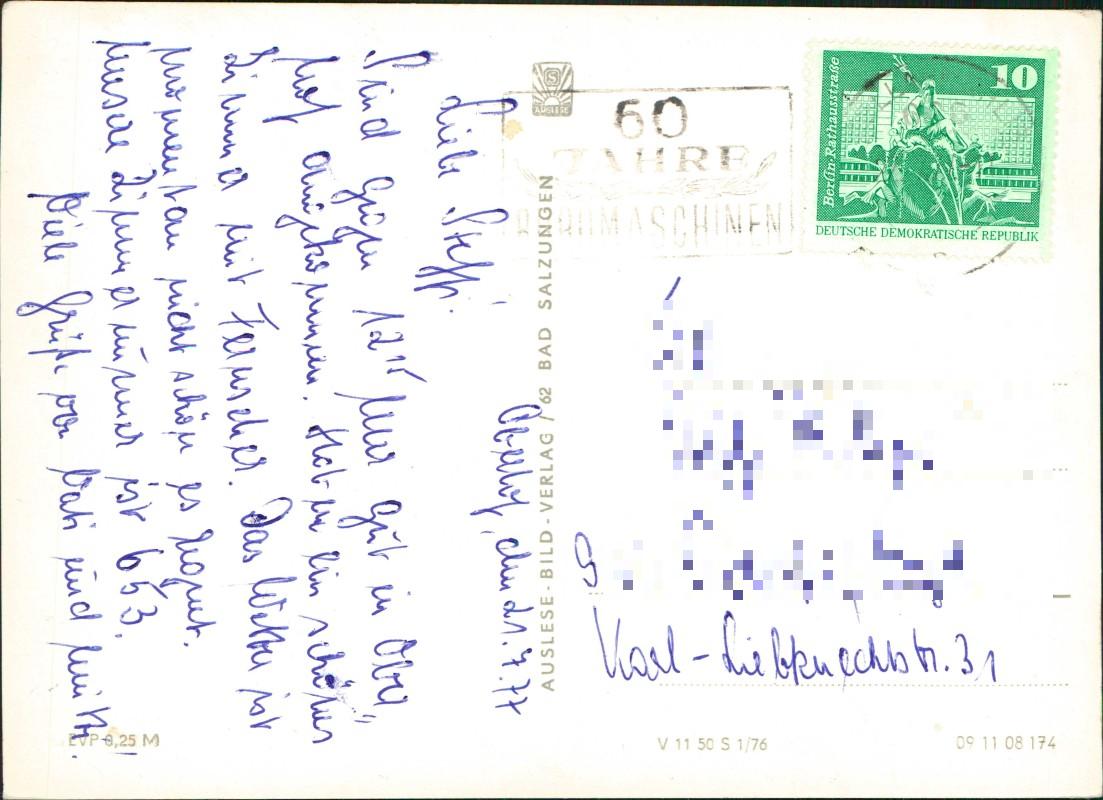 Oberhof, den 21.7.77
Liebe Steffi!
Sind gegen 12¹⁵ Uhr gut in Ober-
hof angekommen. Haben ein schönes
Zimmer mit Fernseher. Das Wetter ist
momentan nicht schön es regnet.
Unsere Zimmernummer ist 653.
Viele Grüße von Vati und Mutti.
AUSLESE
60
JAHRE
BÜROMASCHINEN
Berlin·Rathausstraße
10
DEUTSCHE DEMOKRATISCHE REPUBLIK
AUSLESE-BILD-VERLAG / 62 BAD SALZUNGEN
Karl-Liebknechtstr. 31
EVP 0,25 M
V 11 50 S 1/76
09 11 08 174